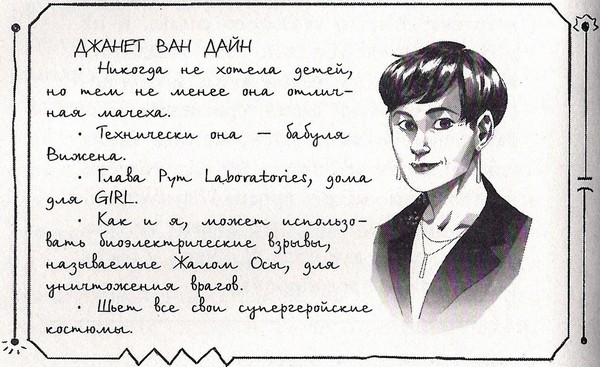 ДЖАНЕТ ВАН ДАЙН
• Никогда не хотела детей,
но тем не менее она отлич-
ная мачеха.
• Технически она — бабуля
Вижена.
• Глава Pym Laboratories, дома
для GIRL.
• Как и я, может использо-
вать биоэлектрические взрывы,
называемые Жалом Осы, для
уничтожения врагов.
• Шьет все свои супергеройские
костюмы.